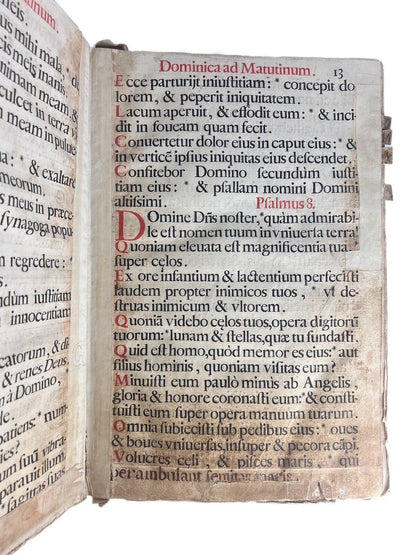 lnum.
eis.
us mihi mala.
neis inanis:
nimam meam: &
culcet in terra vi
n meam in pulue
* & exaltare
meus in præce-
ynagoga popu-
regredere: *
undùm iustitiam
innocentiam
catorum, & di-
& renes Deus,
à Domino,
patiens: * num-
m suũ vibra-
parauit illum.
* sagittas suas
Dominica ad Matutinum. 13
Ecce parturijt iniustitiam: * concepit do
lorem, & peperit iniquitatem.
Lacum aperuit, & effodit eum: * & inci
dit in foueam quam fecit.
Conuertetur dolor eius in caput eius: * &
in verticẽ ipsius iniquitas eius descendet,
Confitebor Domino secundùm iusti
tiam eius: * & psallam nomini Domini
altissimi. Psalmus 8.
Domine Dñs noster, * quàm admirabi
le est nomen tuum in vniuersa terra!
Quoniam eleuata est magnificentia tua *
super cęlos.
Ex ore infantium & lactentium perfecisti
laudem propter inimicos tuos, * vt de-
struas inimicum & vltorem.
Quoniã videbo cęlos tuos, opera digitorũ
tuorum: * lunam & stellas, quæ tu fundasti.
Quid est homo, quòd memor es eius: * aut
filius hominis, quoniam visitas eum?
Minuisti eum paulò minùs ab Angelis,
gloria & honore coronasti eum: * & consti
tuisti eum super opera manuum tuarum.
Omnia subiecisti sub pedibus eius: * oues
& boues vniuersas, insuper & pecora cãpi.
Volucres cęli, & pisces maris, * qui
perambulant semitas maris.